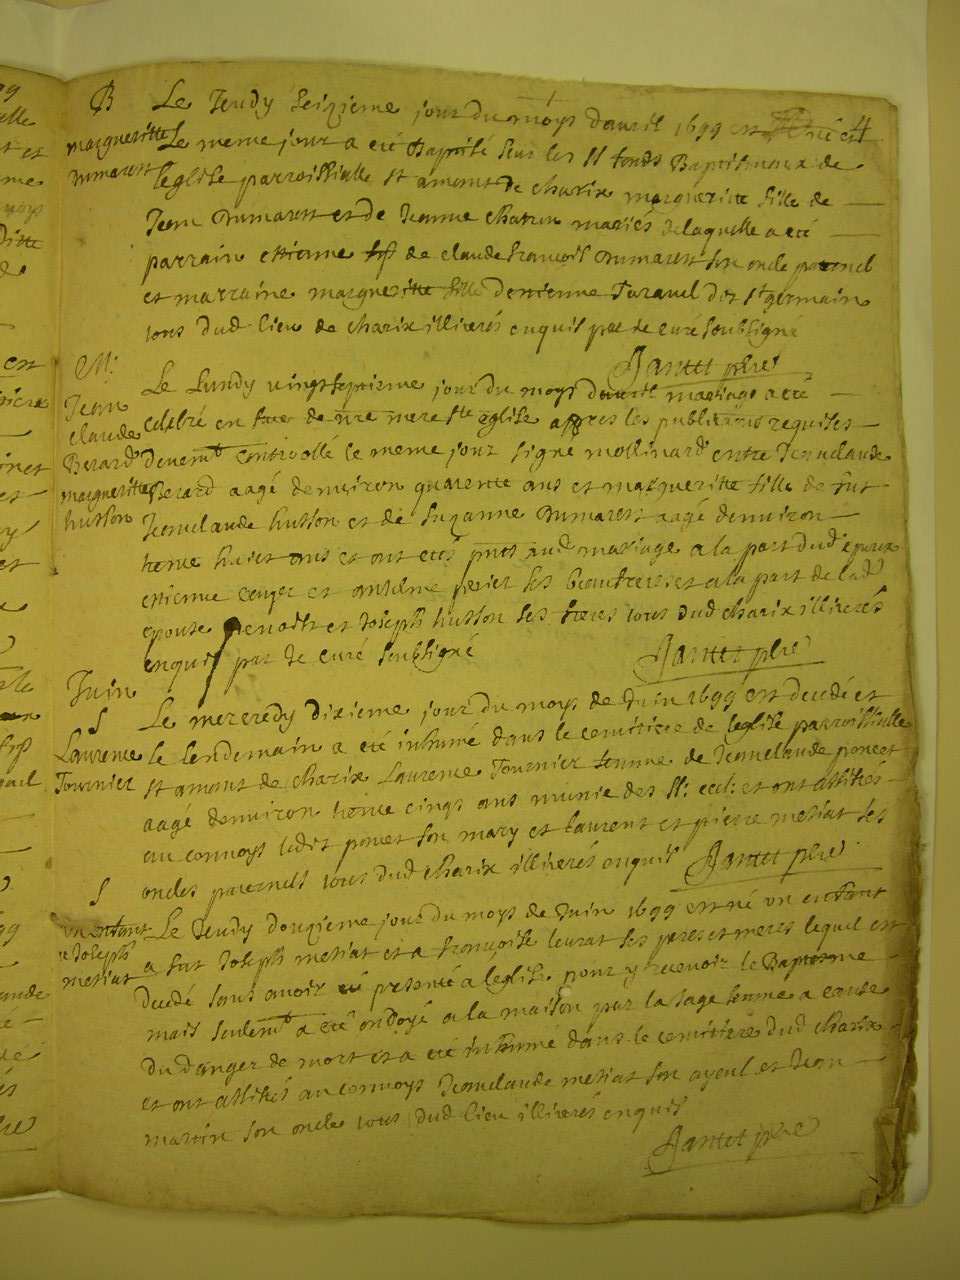 B
margueritte
Dumarest
Le Jeudy seizieme jour du moys d'avril 1699 est né et
Le meme jour a eté Baptisé sur les SS fonds Baptismaux de
l'eglise parroissialle St amont de charix margueritte fille de
Jean Dumarest et de Jeanne chatrin mariés de laquelle a eté
parrain estienne de claude françois Dumarest son oncle paternel
et marraine margueritte fille destienne Juranel de St germain
tous dud lieu de charix illiterés enquis par Je curé soubsigné
Jantet ptre
M:
Jean
claude
Berard
margueritte
husson
Le Lundy vingt septieme jour du moys d'avril mariage a eté
celebré en face de nre mere ste eglise apres les publications requises
deuemt controllé le meme jour signé mollinard entre Jeanclaude
Berard aagé denviron quarente ans et margueritte fille de fut
Jeanclaude husson et de Suzanne Dumarest aagé denviron
trente huict ans et ont etés pnts aud mariage a la part dud epoux
estienne et anthelme ses beaufreres et a la part de lad
epouse benoist et Joseph husson ses freres tous dud charix illiterés
enquis par Je curé soubsigné
Jantet ptre
Juin
S
Laurence
Tournier
Le mercredy dixieme jour du moys de Juin 1699 est decedé et
le lendemain a eté inhumé dans le cemitiere de l'eglise parroissialle
St amont de charix Laurence Tournier femme de Jeanclaude poncet
aagé denviron trente cinqs ans munie des SS: eccl: et ont assistés
au convoys ledit poncet son mary et laurent et pierre metiat ses
oncles paternels tous dud charix illiterés enquis
Jantet ptre
S
un enfant
a Joseph
metiat
Le Jeudy douzieme jour du moys de Juin 1699 est né un enfant
a fut Joseph metiat et a françoise leurat ses peres et meres lequel est
decedé sans avoir eté presenté a l'eglise pour y recevoir le Baptesme
mais seulemt a eté ondoyé a la maison par la sage femme a cause
du danger de mort et a eté inhumé dans le cemitiere dud charix
et ont assistés au convoys Jeanclaude metiat son ayeul et Jean
martin son oncle tous dud lieu illiterés enquis
Jantet ptre